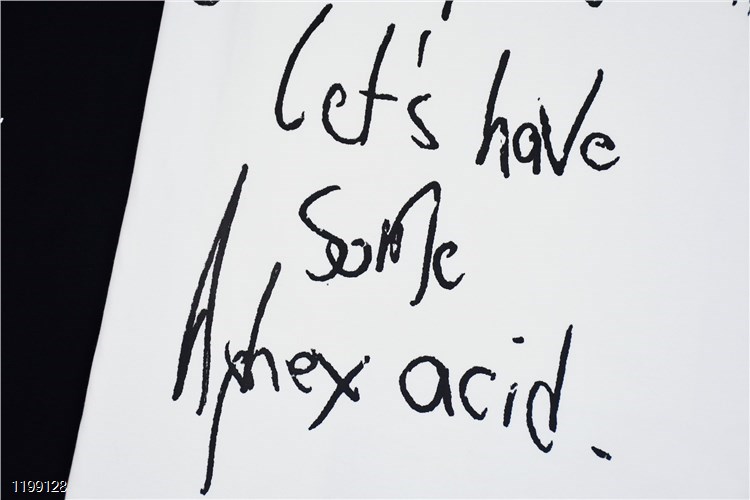 Let's have
some
Aphex acid.
1199128